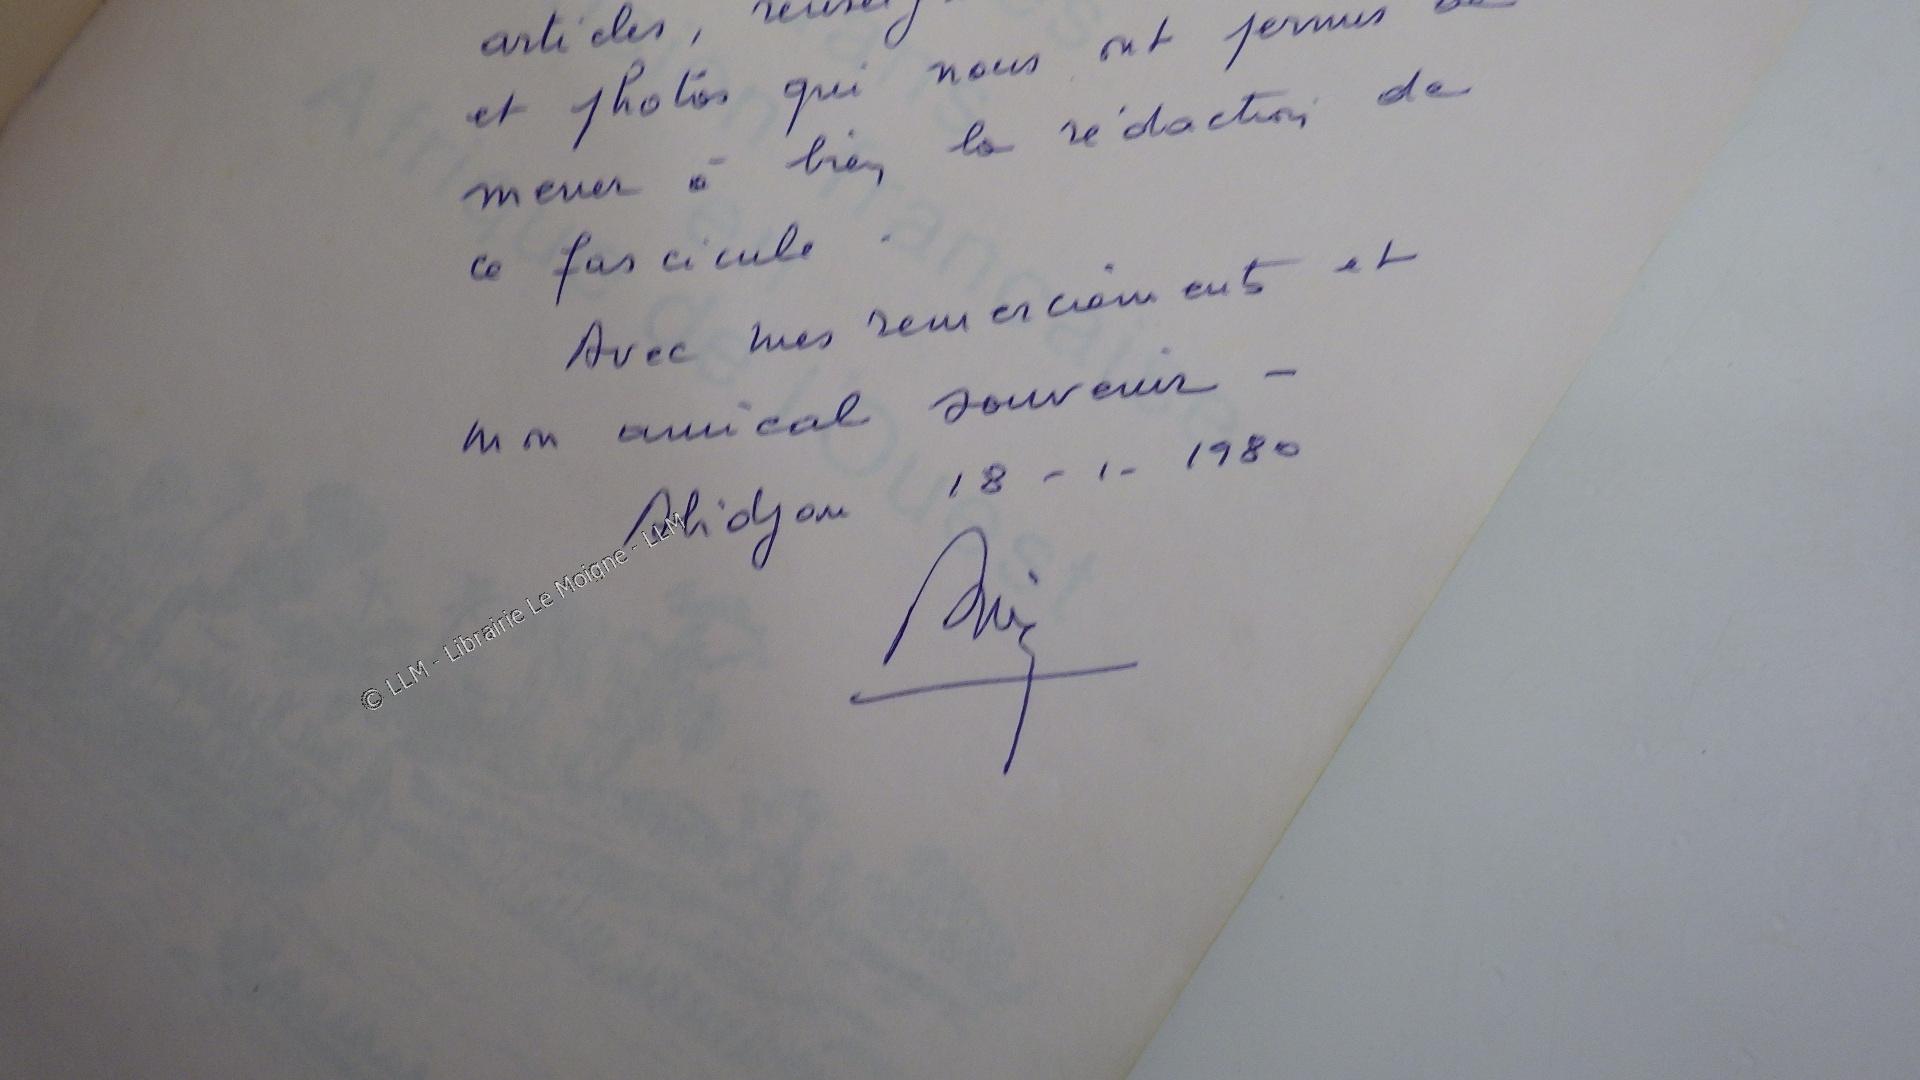 articles,
et photos qui nous ont permis de
mener à bien la rédaction de
ce fascicule.
Avec mes remerciements et
mon amical souvenir -
Abidjan 18 - 1 - 1980
© LLM - Librairie Le Moigne - LLM